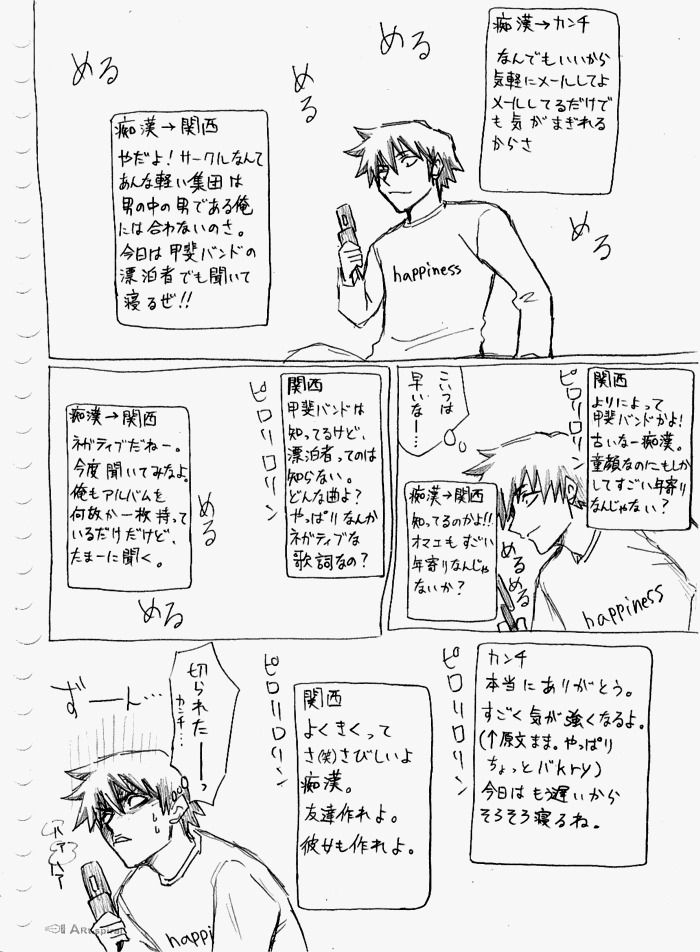 痴漢→カンチ
なんでもいいから
気軽にメールしてよ
メールしてるだけで
も気がまぎれる
からさ
める
める
める
める
痴漢→関西
やだよ!サークルなんて
あんな軽い集団は
男の中の男である俺
には合わないのさ。
今日は甲斐バンドの
漂泊者でも聞いて
寝るぜ!!
happiness
ピロリロリン
関西
よりによって
甲斐バンドかよ!
古いなー痴漢。
童顔なのにもしか
してすごい年寄り
なんじゃない?
こいつは
早いなー…
痴漢→関西
知ってるのかよ!!
オマエもすごい
年寄りなんじゃ
ないか?
める
める
happiness
ピロリロリン
関西
甲斐バンドは
知ってるけど、
漂泊者ってのは
知らない。
どんな曲よ?
やっぱりなんか
ネガティブな
歌詞なの?
痴漢→関西
ネガティブだねー。
今度聞いてみなよ。
俺もアルバムを
何故か一枚持って
いるだけだけど、
たまーに聞く。
める
める
ピロリロリン
カンチ
本当にありがとう。
すごく気が強くなるよ。
(↑原文まま。やっぱり
ちょっとバkry)
今日はもう遅いから
そろそろ寝るね。
ピロリロリン
関西
よくきくって
さ(笑)さびしいよ
痴漢。
友達作れよ。
彼女も作れよ。
切られたーーっ
カンチ…
ずーん…
ハァハァ
happi